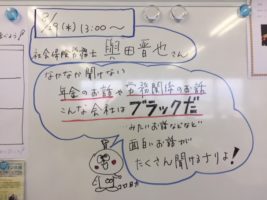 /29(水) 13:00〜
社会保険労務士 田晋也さん
なかなか聞けない
年金のお話や労務関係のお話
こんな会社はブラックだ
みたいな話などなど
面白いお話が
たくさん聞けるチリよ!